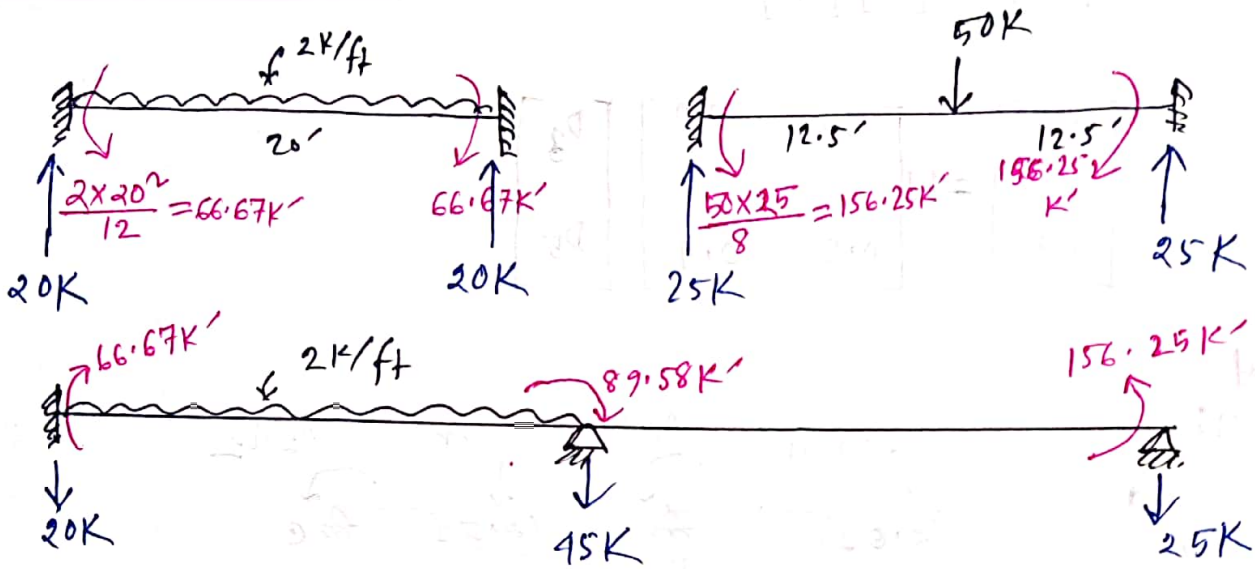 2K/ft
20′
2×20²/12 = 66.67K′
66.67K′
20K
20K
50K
12.5′
12.5′
50×25/8 = 156.25K′
156.25
K′
25K
25K
66.67K′
2K/ft
89.58K′
156.25K′
20K
45K
25K